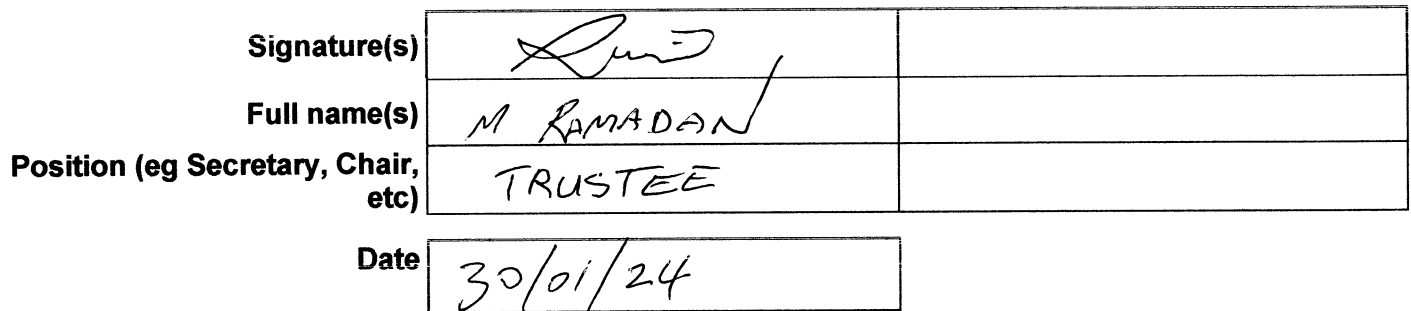 Signature(s)
Full name(s) M RAMADAN
Position (eg Secretary, Chair,
etc) TRUSTEE
Date 30/01/24